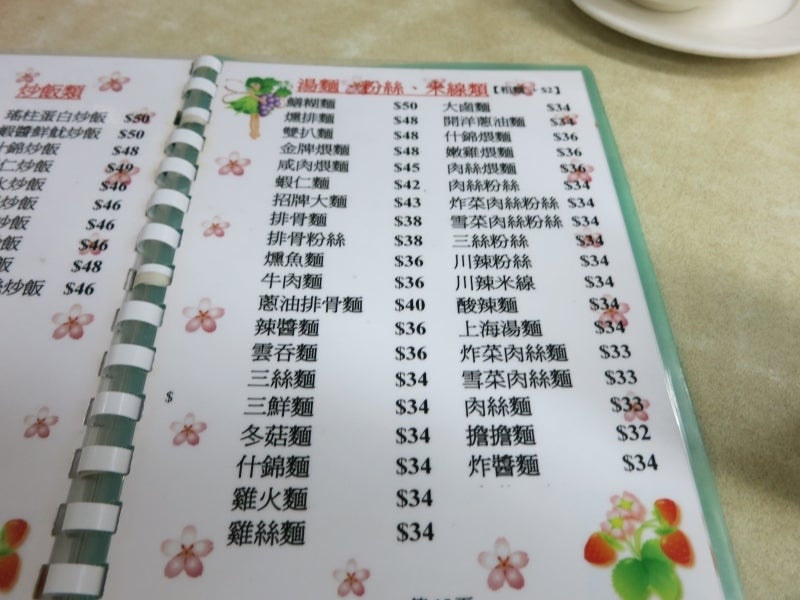 炒飯類
瑤柱蛋白炒飯 $50
蝦醬鮮魷炒飯 $50
什錦炒飯 $48
仁炒飯 $49
火炒飯 $46
炒飯 $46
炒飯 $46
飯 $46
飯 $48
炒飯 $46
湯麵、粉絲、米線類【粗麵 $2】
鱔糊麵 $50
燻排麵 $48
雙扒麵 $48
金牌煨麵 $48
咸肉煨麵 $45
蝦仁麵 $42
招牌大麵 $43
排骨麵 $38
排骨粉絲 $38
燻魚麵 $36
牛肉麵 $36
蔥油排骨麵 $40
辣醬麵 $36
雲吞麵 $36
三絲麵 $34
$
三鮮麵 $34
冬菇麵 $34
什錦麵 $34
雞火麵 $34
雞絲麵 $34
大鹵麵 $34
開洋蔥油麵 $34
什錦煨麵 $36
嫩雞煨麵 $36
肉絲煨麵 $36
肉絲粉絲 $34
炸菜肉絲粉絲 $34
雪菜肉絲粉絲 $34
三絲粉絲 $34
川辣粉絲 $34
川辣米線 $34
酸辣麵 $34
上海湯麵 $34
炸菜肉絲麵 $33
雪菜肉絲麵 $33
肉絲麵 $33
擔擔麵 $32
炸醬麵 $34